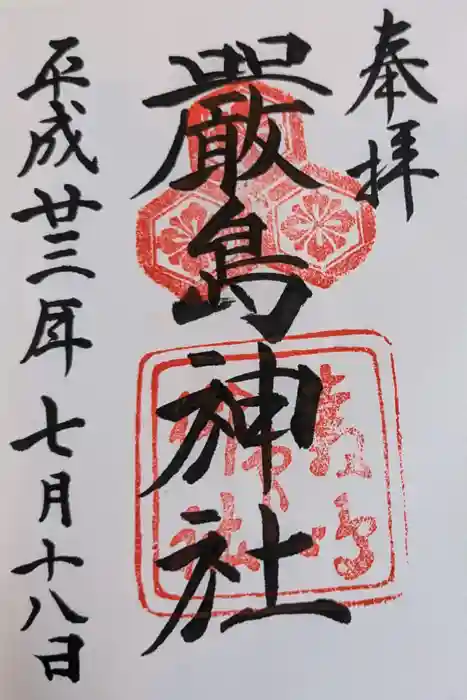 奉拝
嚴島神社
平成廿三年七月十八日
嚴島
神社